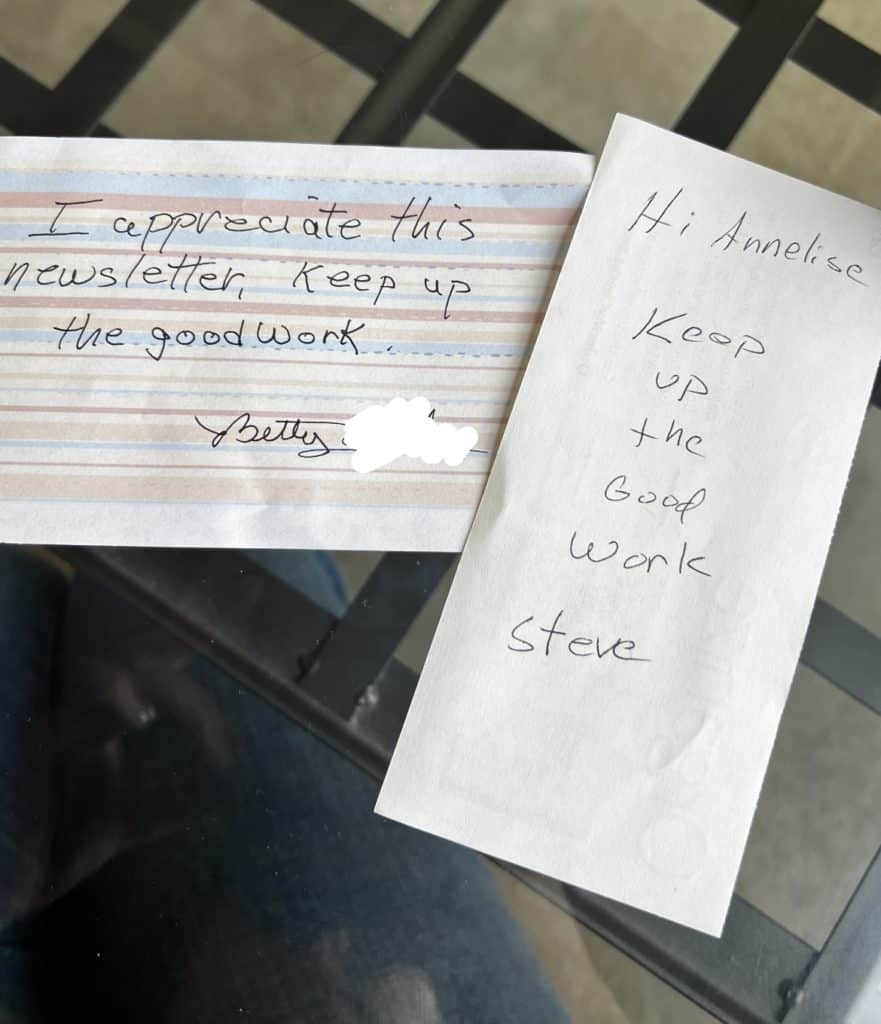 I appreciate this
newsletter, Keep up
the good work.
Betty
Hi Annelise
Keep
up
the
Good
Work
Steve